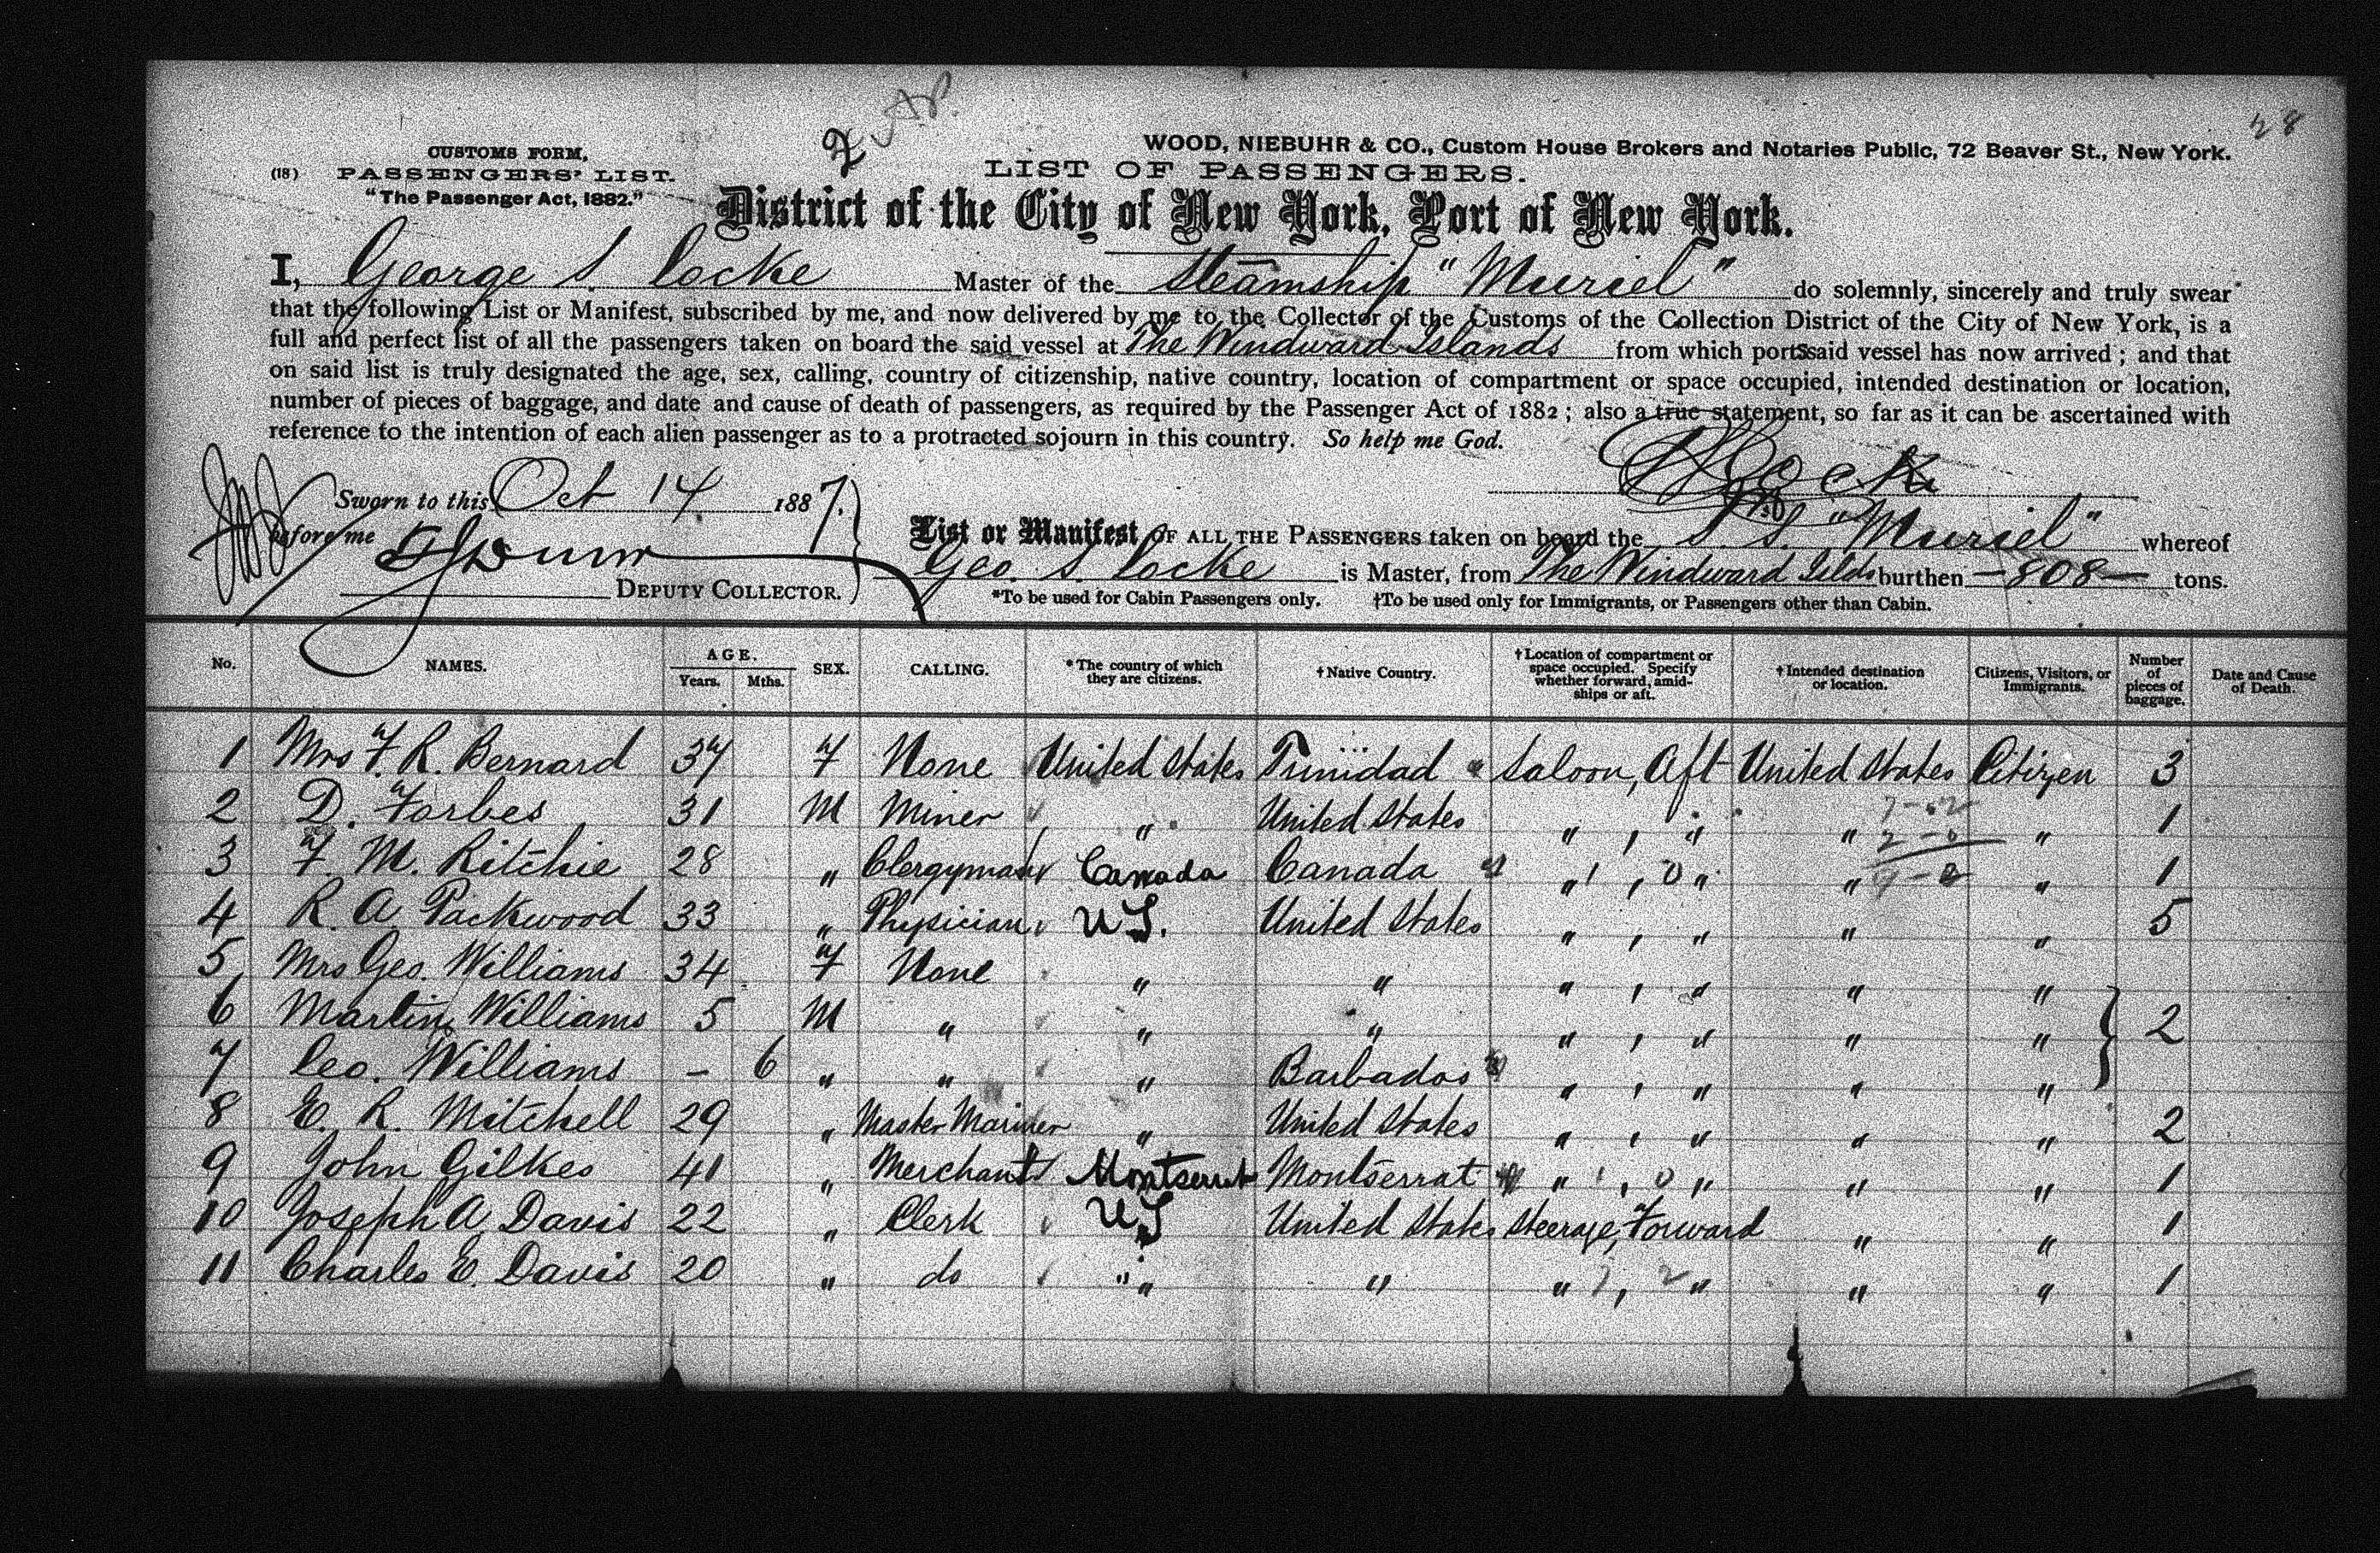 28
2
WOOD, NIEBUHR & CO., Custom House Brokers and Notaries Public, 72 Beaver St., New York.
CUSTOMS FORM,
(18) PASSENGERS' LIST.
"The Passenger Act, 1882."
LIST OF PASSENGERS.
District of the City of New York, Port of New York.
I, George S. Locke Master of the Steamship "Muriel" do solemnly, sincerely and truly swear
that the following List or Manifest, subscribed by me, and now delivered by me to the Collector of the Customs of the Collection District of the City of New York, is a
full and perfect list of all the passengers taken on board the said vessel at The Windward Islands from which ports said vessel has now arrived; and that
on said list is truly designated the age, sex, calling, country of citizenship, native country, location of compartment or space occupied, intended destination or location,
number of pieces of baggage, and date and cause of death of passengers, as required by the Passenger Act of 1882; also a true statement, so far as it can be ascertained with
reference to the intention of each alien passenger as to a protracted sojourn in this country. So help me God.
Sworn to this Oct 14 1887.
before me
DEPUTY COLLECTOR.
List or Manifest OF ALL THE PASSENGERS taken on board the S. S. "Muriel" whereof
Geo. S. Locke is Master, from The Windward Islds burthen —808— tons.
*To be used for Cabin Passengers only. †To be used only for Immigrants, or Passengers other than Cabin.
No. NAMES. AGE. Years. Mths. SEX. CALLING. *The country of which they are citizens. †Native Country. †Location of compartment or space occupied. Specify whether forward, amidships or aft. †Intended destination or location. Citizens, Visitors, or Immigrants. Number of pieces of baggage. Date and Cause of Death.
1 Mrs F. R. Bernard 37 F None United States Trinidad Saloon, Aft United States Citizen 3
2 D. Forbes 31 M Miner " United States " , " " " 1
3 F. M. Ritchie 28 " Clergyman Canada Canada " , " " " 1
4 R. A. Packwood 33 " Physician U S. United States " , " " " 5
5 Mrs Geo. Williams 34 F None " " " , " " "
6 Martin Williams 5 M " " " " , " " " 2
7 Leo. Williams – 6 " " " Barbados " , " " "
8 E. R. Mitchell 29 " Master Mariner " United States " , " " " 2
9 John Gilkes 41 " Merchant Montserrat Montserrat " , " " " 1
10 Joseph A. Davis 22 " Clerk U S United States Steerage, Forward " " 1
11 Charles E. Davis 20 " do " " " , " " " 1